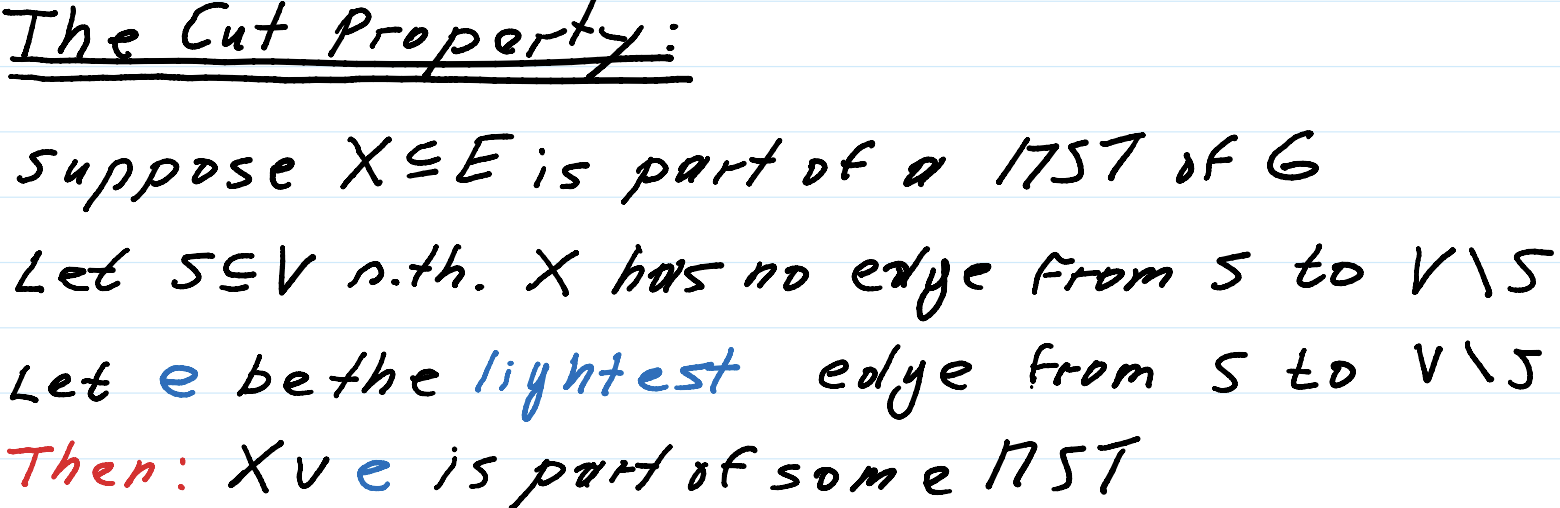 The Cut Property:
Suppose X ⊆ E is part of a MST of G
Let S ⊆ V s.th. X has no edge from S to V \ S
Let e be the lightest edge from S to V \ S
Then: X ∪ e is part of some MST